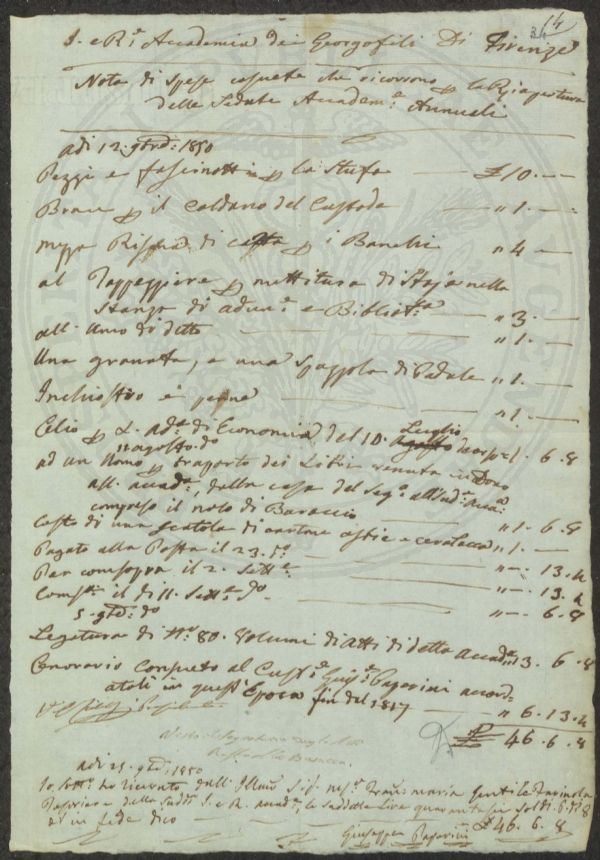 14
34
I. e R. Accademia dei Georgofili Di Firenze
Nota di Spese consuete che ricorrono p la Riapertura
delle Sedute Accadem.e Annuali
adi 12. 9bre: 1850
Pezzi e fascinotti p la Stufa £ 10. —
Brace p il Caldano del Custode " 1. —
mezza Risma di carta p i Banchi " 4 —
al Tappezziere p mettitura di Stoja nelle
Stanze di adun.e e Bibliot.ca " 3. —
all. Uomo di detto " 1. —
Una granata, e una Spazzola di Padule " 1. —
Inchiostro e penne " 1. —
Olio p 2. ad.e di Economia, del 10. Luglio decorso 1. 6. 8
11 agosto do
ad un Uomo p trasporto dei Libri venuti in Dono
all. accad.a, dalla casa del Seg.o all'ad.e
compreso il nolo di Baroccio " 1. 6. 8
Costo di una Scatola di cartone ostie e ceralacca " 1. —
Pagato alla Posta il 23. " — 13. 4
Per consegna il 2. Sett.e " — 13. 4
il di 11. Sett.e do " — 6. 8
5. 9bre: do
Legatura di No 80. Volumi di atti di detta Accad.a 13. 6. 8
Onorario consueto al Cust.e Gius.e Paperini accord-
atoli in quest Epoca fin del 1817 " 6. 13. 4
£ 46. 6. 8
adi 25. 9bre: 1850
Io sott.o ho ricevuto dall' Illmo Sig. maria gentile Farinola
Tesoriere della Sudd.a I. e R. Accad.a, le suddette Lire quarantasei Soldi 6. di 8
ed in fede dico £ 46. 6. 8
Giuseppe Paperini